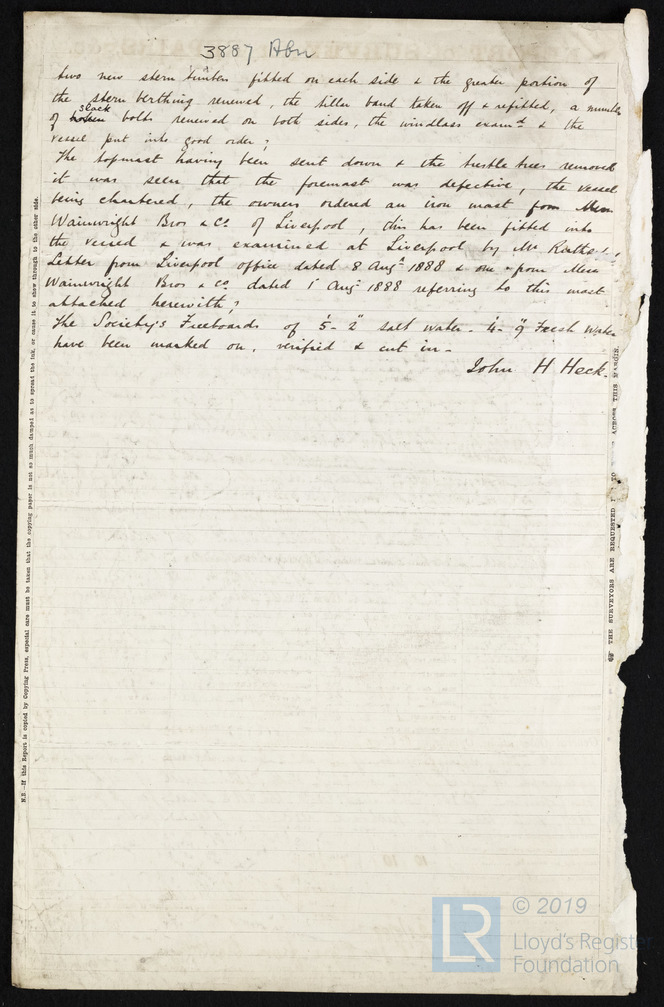 3887 Abn
two new stern timbers fitted on each side & the greater portion of
the stern berthing renewed, the tiller band taken off & refitted, a number
slack
of broken bolts renewed on both sides, the windlass examd & the
vessel put into good order;
The topmast having been sent down & the trestle trees removed
it was seen that the foremast was defective, the vessel
being chartered, the owners ordered an iron mast from Mess
Wainwright Bros & Co. of Liverpool, this has been fitted into
the vessel & was examined at Liverpool by Mr
Letter from Liverpool office dated 8 Augt 1888 & one from Mess
Wainwright Bros & Co dated 1 Aug 1888 referring to this mast
attached herewith;
The Society's Freeboards of 5-2" salt water. 4-9" Fresh Water
have been marked on, verified & cut in-
John H Heck.
N.B.-If this Report is copied by Copying Press, especial care must be taken that the copying paper is not so much damped as to spread the ink, or cause it to show through to the other side.
THE SURVEYORS ARE REQUESTED TO ACROSS THIS MARGIN.
LR
© 2019
Lloyd's Register
Foundation